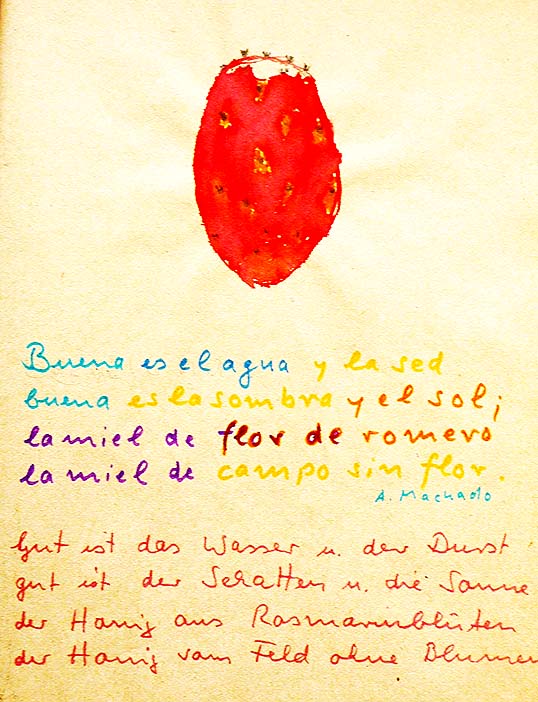 Buena es el agua y la sed
buena es la sombra y el sol;
la miel de flor de romero
la miel de campo sin flor.
A. Machado
Gut ist das Wasser u. der Durst
gut ist der Schatten u. die Sonne
der Honig aus Rosmarinblüten
der Honig vom Feld ohne Blumen